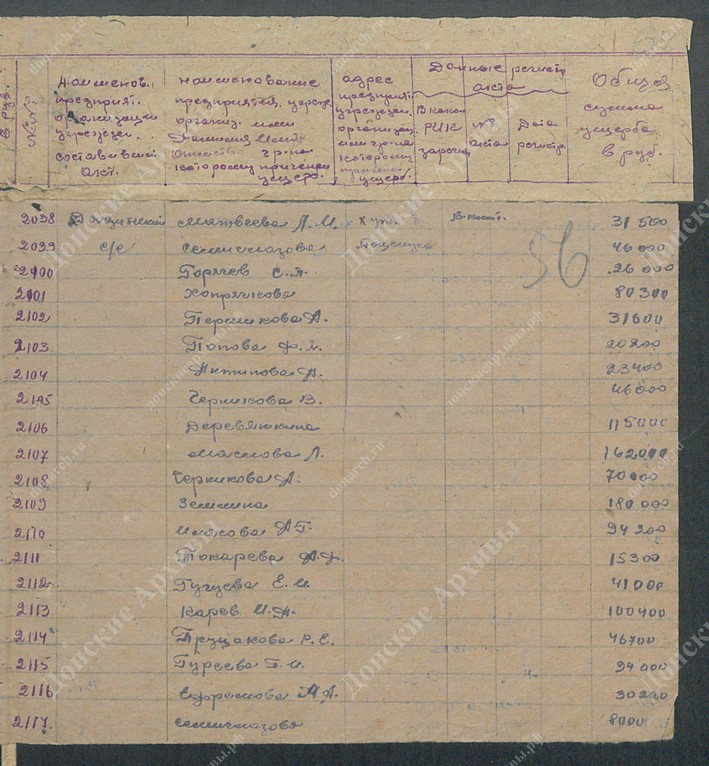 №№
Наименов. предприят. организации учрежден. составивший акт.
наименование предприятия, учрежд. организ. или Фамилия Имя Отчество гр-на которому причинен ущерб.
адрес предприят. учрежден. организац. или гр-на которому причинен ущерб.
Данные регистр. акта
В каком РИК зарегис.
№ акта
Дата регистр.
Общая сумма ущерба в руб.
2098 Матвеева Л.М. Хут. 31 500
2099 с/с Семиглазова 46 000
2100 Горячев С.А. 26 000
2101 Хопрячкова 80 300
2102 Першикова А. 31600
2103 Попова Ф.Я. 20200
2104 Антипова А. 23400
2105 Черникова В. 46 000
2106 Деревянкина 115000
2107 Маслова Л. 162000
2108 Черникова А. 70000
2109 Землина 180 000
2110 А.Г. 94 200
2111 Токарева 15300
2112 Гугуева Е.И. 41000
2113 Карев И.А. 100400
2114 Трущакова Р.Е. 46700
2115 Гуреева П.И. 94 000
2116 Ефремова М.А. 30220
2117. Семиглазова 8000
56
Донские Архивы
donarch.ru
донскиеархивы.рф